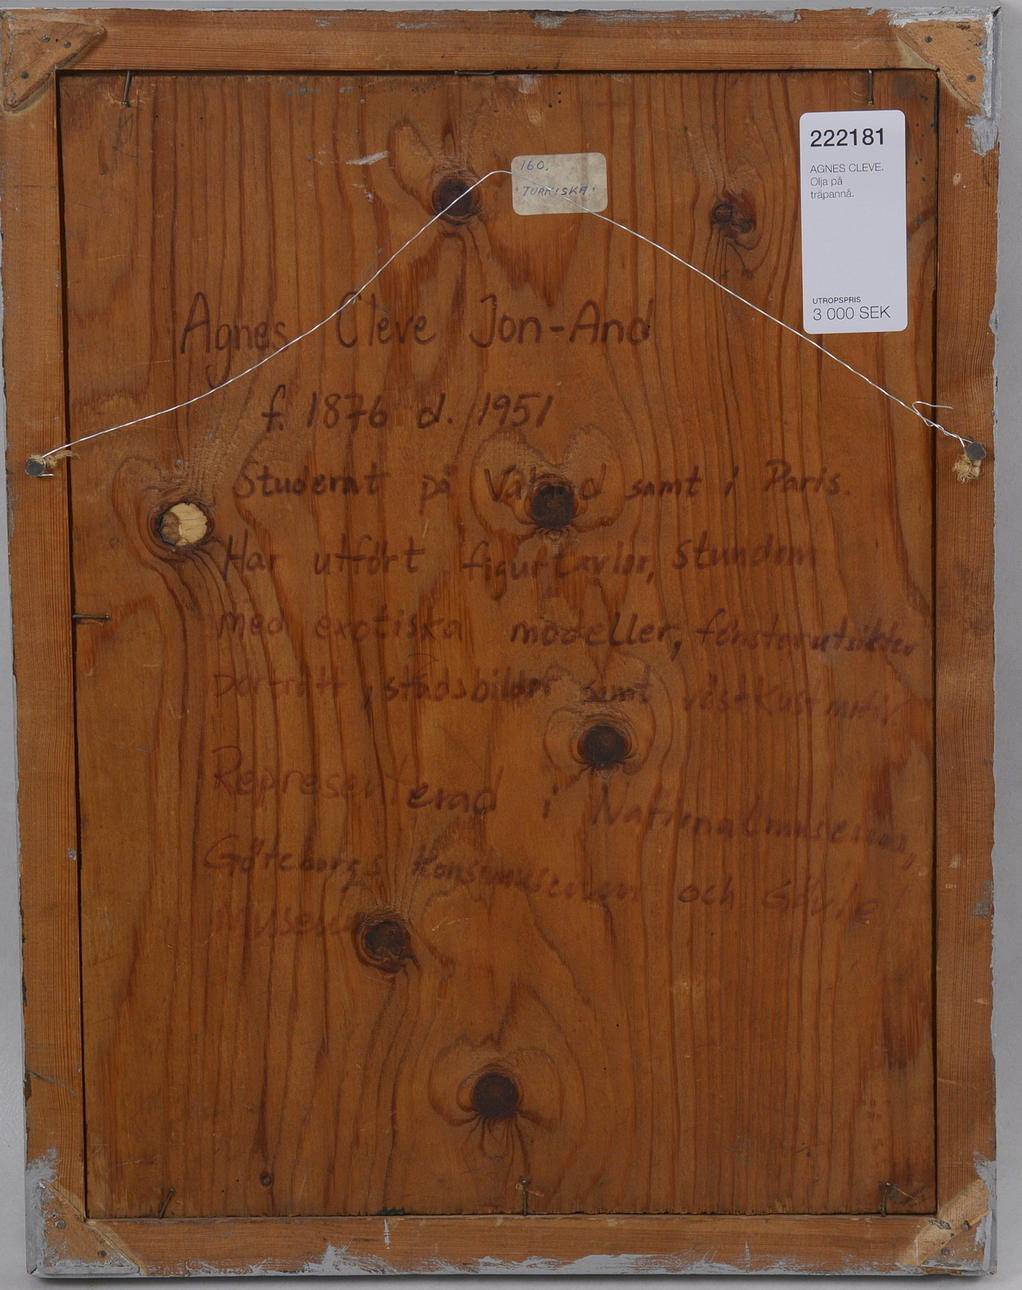 160.
"TURKISKA"
222181
AGNES CLEVE.
Olja på
träpannå.
UTROPSPRIS
3 000 SEK
Agnes Cleve Jon-And
f. 1876 d. 1951
Studerat på Valand samt i Paris.
Har utfört figurtavlor, stundom
med exotiska modeller, fönsterutsikter
porträtt, stadsbilder samt västkustmotiv.
Representerad i Nationalmuseum,
Göteborgs Konstmuseum och Gävle
Museum